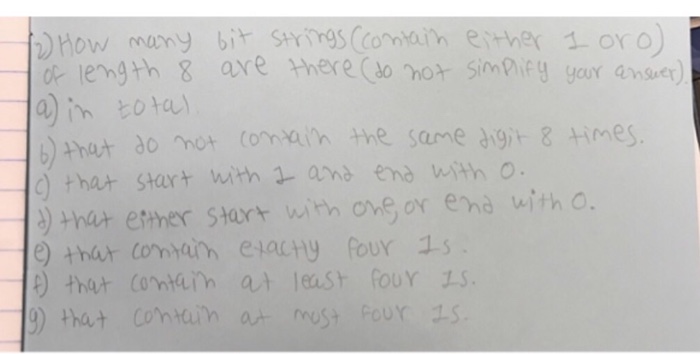 2) How many bit strings (contain either 1 or 0)
of length 8 are there (do not simplify your answer).
a) in total
b) that do not contain the same digit 8 times.
c) that start with 1 and end with 0.
d) that either start with one, or end with 0.
e) that contain exactly four 1s.
f) that contain at least four 1s.
g) that contain at most four 1s.